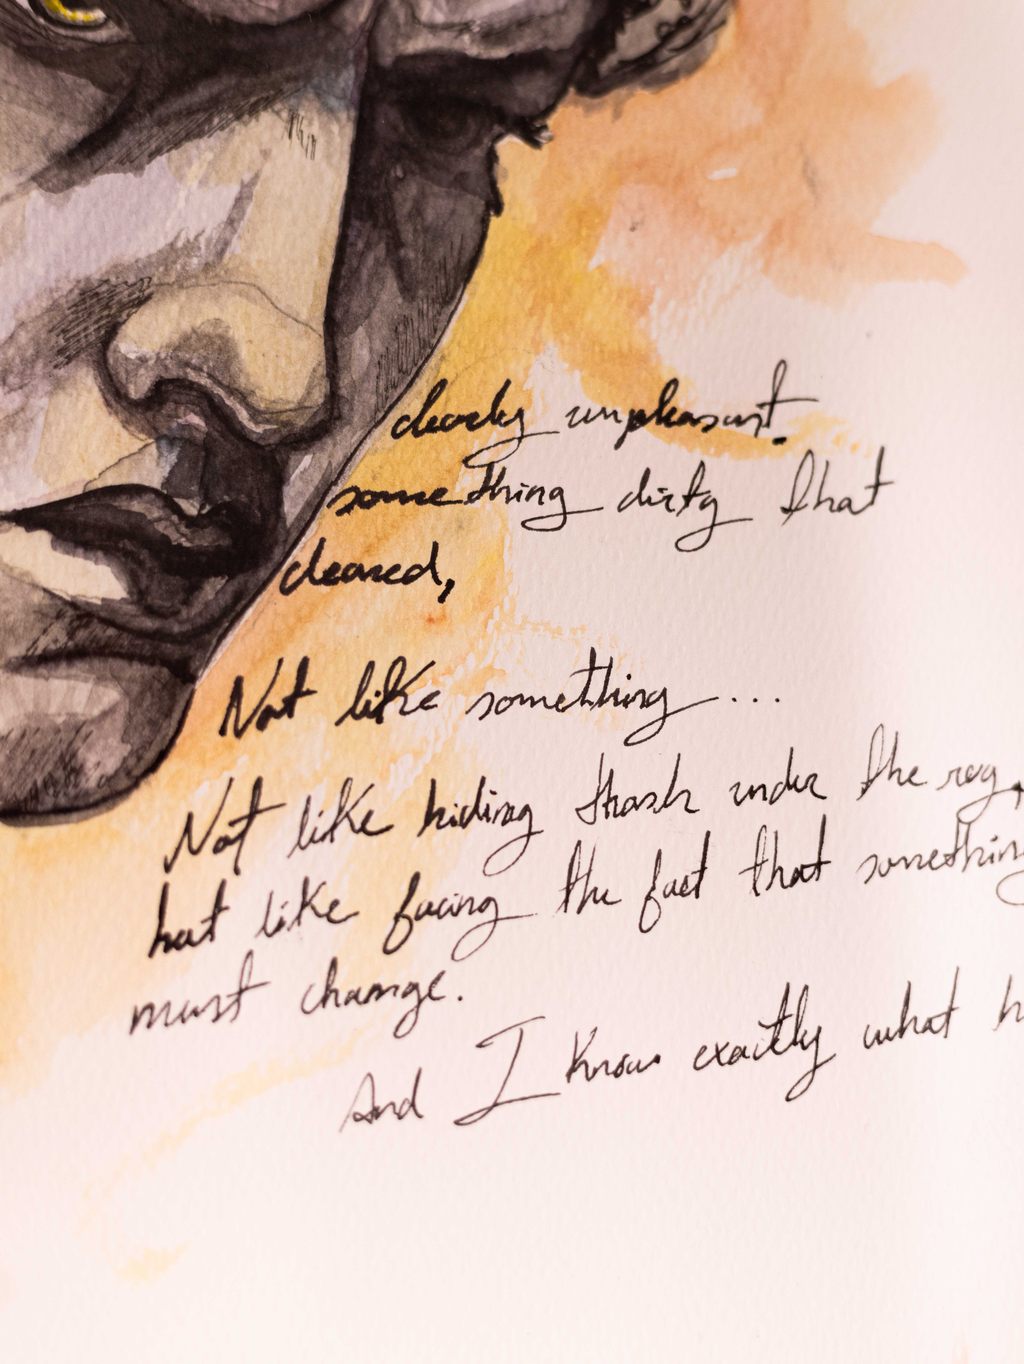 clearly unpleasant.
something dirty that
cleared,
Not like something ...
Not like hiding thash under the rog,
but like facing the fact that something
must change.
And I know exactly what h